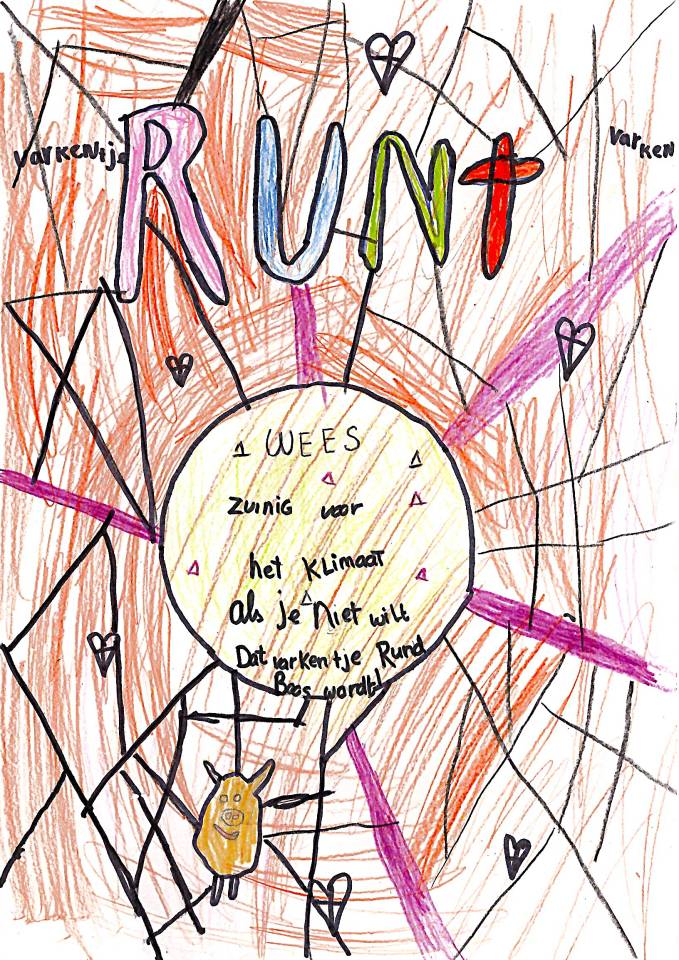 RUNt
varkentje
varken
WEES
zuinig voor
het KLimaat
als je Niet wilt
Dat varkentje Rund
Boos wordt!